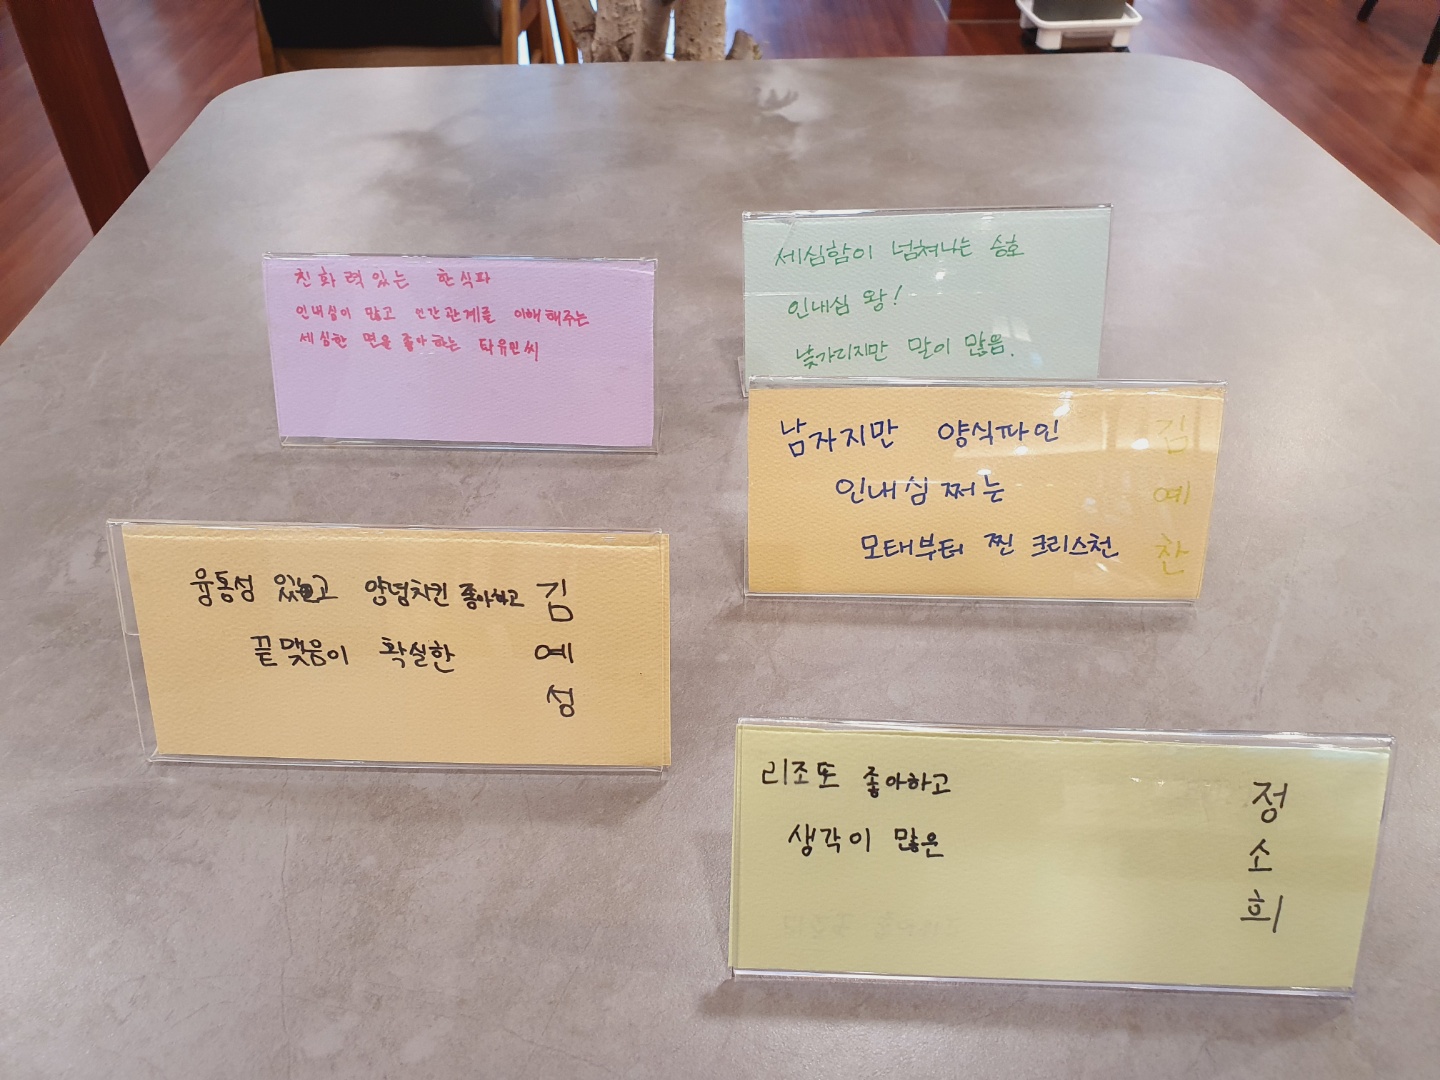 친화력있는 한식파
인내심이 많고 인간관계를 이해해주는
세심한 면을 좋아하는 타유민씨
세심함이 넘쳐나는 승호
인내심 왕!
낯가리지만 말이 많음.
남자지만 양식파인
인내심 쩌는
모태부터 찐 크리스천
김예찬
융통성 있고 양념치킨 좋아하고
끝맺음이 확실한
김예성
리조또 좋아하고
생각이 많은
정소희